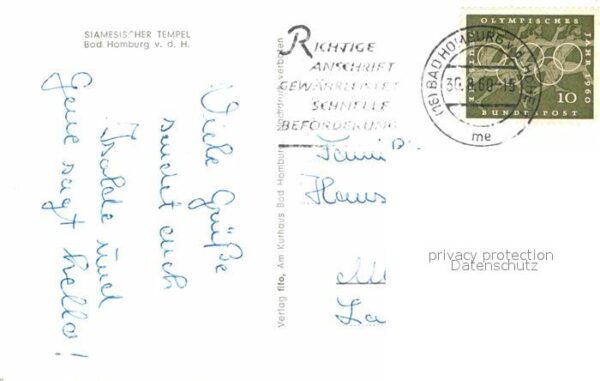 SIAMESISCHER TEMPEL
Bad Homburg v. d. H.
Viele Grüße
sendet euch
Isolde und
Gene sagt hello!
Verlag fifo, Am Kurhaus Bad Homburg Nachdruck verboten
RICHTIGE
ANSCHRIFT
GEWÄHRLEISTET
SCHNELLE
BEFÖRDERUNG
(16) BAD HOMBURG v.d. HÖHE
30.8.60-15
me
OLYMPISCHES
JAHR 1960
10
BUNDESPOST
Hans
privacy protection
Datenschutz